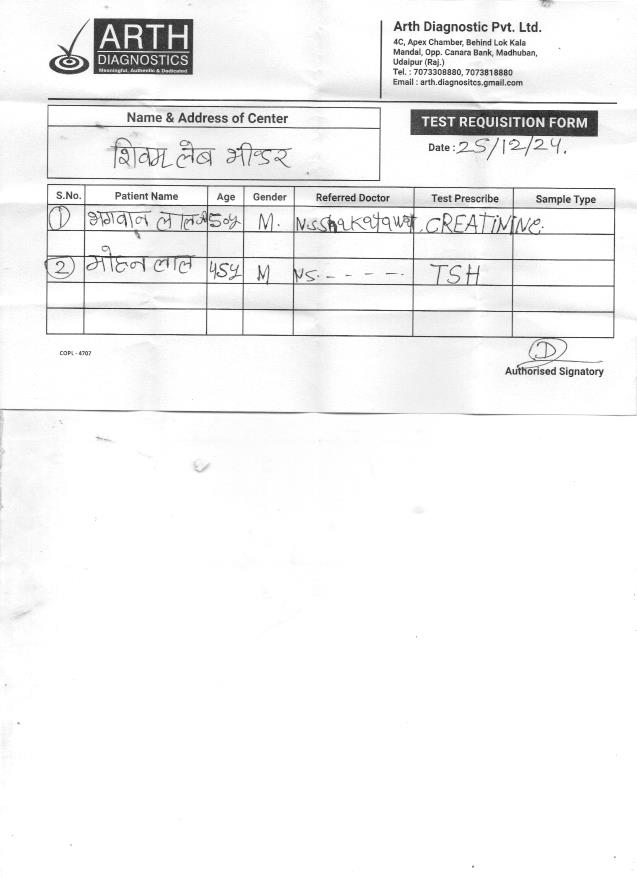 ARTH
DIAGNOSTICS
Meaningful, Authentic & Dedicated
Arth Diagnostic Pvt. Ltd.
4C, Apex Chamber, Behind Lok Kala
Mandal, Opp. Canara Bank, Madhuban,
Udaipur (Raj.)
Tel. : 7073308880, 7073818880
Email : arth.diagnositcs.gmail.com
Name & Address of Center
शिवम लेब भीन्डर
TEST REQUISITION FORM
Date : 25/12/24.
S.No. Patient Name Age Gender Referred Doctor Test Prescribe Sample Type
1 भगवान लाल 50y M. N.S Shakatawat CREATiNiNe.
2 मोहन लाल 45y M NS. - - - - TSH
COPL - 4707
D
Authorised Signatory